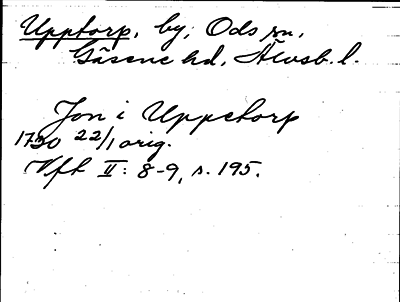 Upptorp, by, Ods sn,
Gäsene hd, Älvsb. l.
Jon i Uppetorp
1730 22/1 orig.
Vft II: 8-9, s. 195.